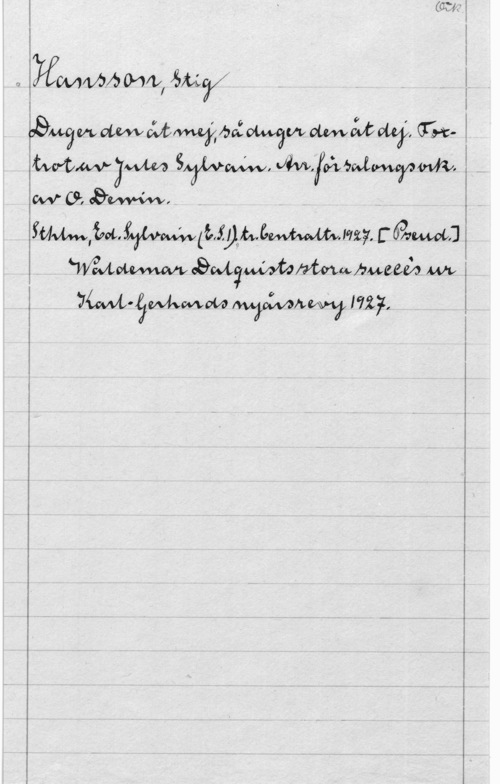 Hansson, Stig
Duger den åt mej, så duger den åt dej. Fox-
trot av Jules Sylvain. Arr. för salongsork.
av O. Dewin.
Sthlm, Ed. Sylvain (E.S.1), tr. Centraltr. 1927. [Pseud.]
Waldemar Dalquists stora succès ur
Karl-Gerhards nyårsrevy 1927.